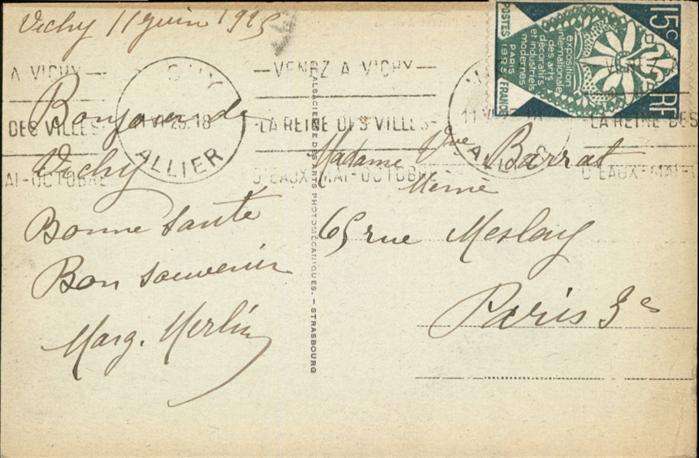 Vichy 11 juin 1925
Bonjour de
Vichy
Bonne Santé
Bon souvenir
Marg. Merlin
A VICHY
DES VILLES-
MAI-OCTOBRE
VICHY
11 VI 25. 18
ALLIER
VENEZ A VICHY
LA REINE DES VILLES-
D'EAUX MAI-OCTOBRE
LA REINE DES
D'EAUX-MAI
ALSACIENNE DES ARTS PHOTOMÉCANIQUES. – STRASBOURG
15c
RF
exposition
internationale
des arts
décoratifs
et industriels
modernes
PARIS
1925
POSTES FRANCE
Madame Vve Barrat
65 rue Meslay
Paris 3e